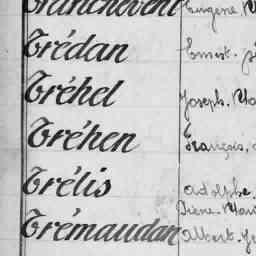 Tranchevent Eugène.
Trédan Ernest.
Tréhel Joseph.
Tréhen François,
Trélis Adolphe.
Pierre.
Trémaudan Albert.